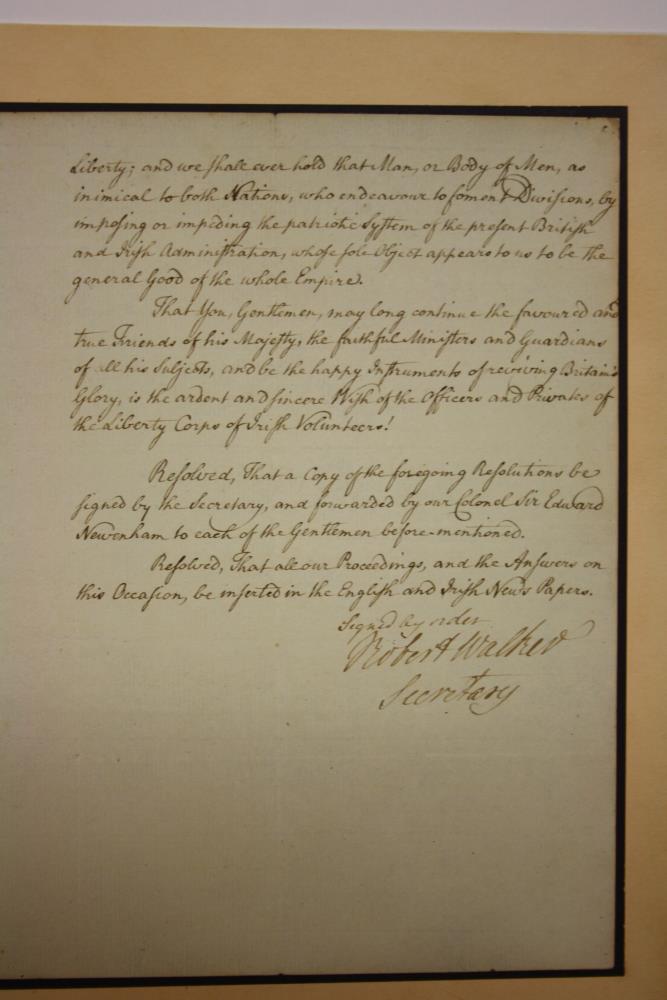 Liberty; and we shall ever hold that Man, or Body of Men, as
inimical to both Nations, who endeavour to foment Divisions, by
imposing or impeding the patriotic System of the present British
and Irish Administration, whose sole Object appears to us to be the
general Good of the whole Empire.
That You, Gentlemen, may long continue the favoured and
true Friends of his Majesty, the faithful Ministers and Guardians
of all his Subjects, and be the happy Instruments of reviving Britain's
Glory, is the ardent and sincere Wish of the Officers and Privates of
the Liberty Corps of Irish Volunteers!
Resolved, That a Copy of the foregoing Resolutions be
signed by the Secretary, and forwarded by our Colonel Sir Edward
Newenham to each of the Gentlemen before-mentioned.
Resolved, That all our Proceedings, and the Answers on
this Occasion, be inserted in the English and Irish News Papers.
Signed by order
Robert Walker
Secretary